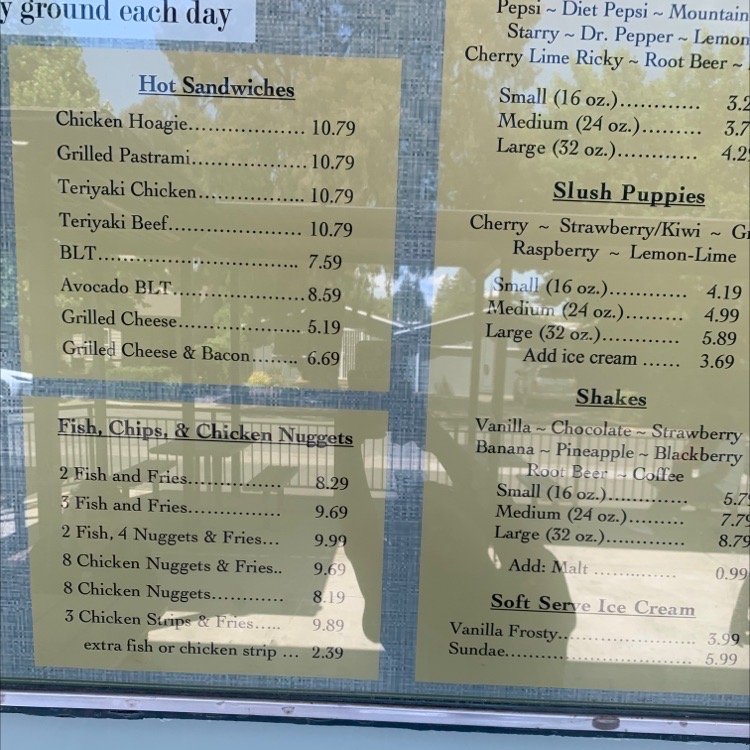 y ground each day
Hot Sandwiches
Chicken Hoagie.................. 10.79
Grilled Pastrami.................. 10.79
Teriyaki Chicken................ 10.79
Teriyaki Beef..................... 10.79
BLT............................... 7.59
Avocado BLT.................... 8.59
Grilled Cheese................... 5.19
Grilled Cheese & Bacon........ 6.69
Fish, Chips, & Chicken Nuggets
2 Fish and Fries............... 8.29
3 Fish and Fries............... 9.69
2 Fish, 4 Nuggets & Fries... 9.99
8 Chicken Nuggets & Fries.. 9.69
8 Chicken Nuggets............ 8.19
3 Chicken Strips & Fries..... 9.89
extra fish or chicken strip ... 2.39
Pepsi ~ Diet Pepsi ~ Mountain
Starry ~ Dr. Pepper ~ Lemon
Cherry Lime Ricky ~ Root Beer ~
Small (16 oz.)............ 3.2
Medium (24 oz.)......... 3.7
Large (32 oz.)............ 4.2
Slush Puppies
Cherry ~ Strawberry/Kiwi ~ G
Raspberry ~ Lemon-Lime
Small (16 oz.)............ 4.19
Medium (24 oz.).......... 4.99
Large (32 oz.)............ 5.89
Add ice cream ...... 3.69
Shakes
Vanilla ~ Chocolate ~ Strawberry
Banana ~ Pineapple ~ Blackberry
Root Beer ~ Coffee
Small (16 oz.)............. 5.7
Medium (24 oz.)......... 7.79
Large (32 oz.)............. 8.79
Add: Malt .............. 0.99
Soft Serve Ice Cream
Vanilla Frosty.................... 3.99
Sundae........................... 5.99